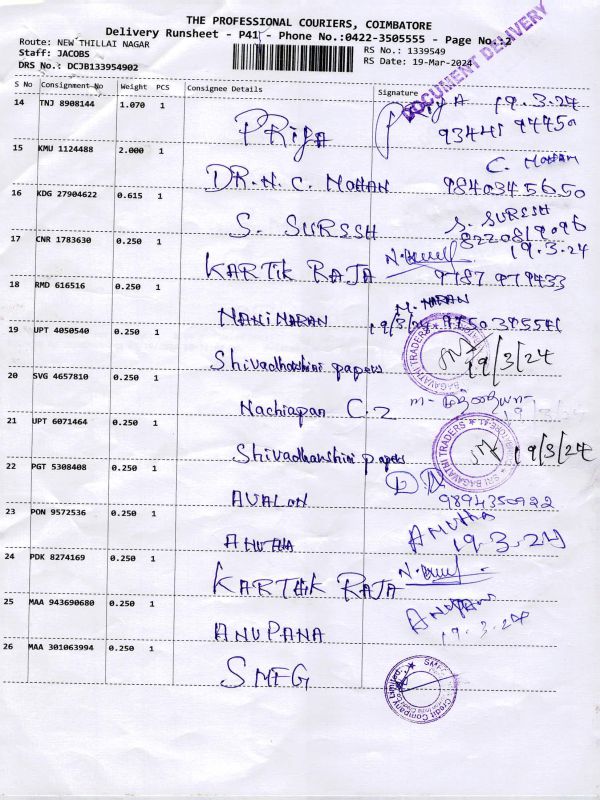 THE PROFESSIONAL COURIERS, COIMBATORE
Delivery Runsheet - P41 - Phone No.:0422-3505555 - Page No.:2
Route: NEW THILLAI NAGAR
RS No.: 1339549
Staff: JACOBS
RS Date: 19-Mar-2024
DRS No.: DCJB133954902
DOCUMENT DELIVERY
S No Consignment No Weight PCS Consignee Details Signature
14 TNJ 8908144 1.070 1 PRiyA Priya 19.3.24
93441 94450
15 KMU 1124488 2.000 1 DR.N. C. MOHAN C. MOHAN
9840345650
16 KDG 27904622 0.615 1 S. SURSSH S. SURSSH
8220819096
17 CNR 1783630 0.250 1 KARTiK RAJA 19.3.24
9787 979433
18 RMD 616516 0.250 1 MANINARAN M. NARAN
19 UPT 4050540 0.250 1 Shivadharshini papers 19/3/24
SRI BAGAVATHI TRADERS
20 SVG 4657810 0.250 1 Nachiapan C. 2
19/3/24
21 UPT 6071464 0.250 1 Shivadharshini papers 19/3/24
SRI BAGAVATHI TRADERS
22 PGT 5308408 0.250 1 AVALON
9894350922
23 PON 9572536 0.250 1 ANUTHA ANUTHA
19.3.24
24 PDK 8274169 0.250 1 KARTHiK RAJA
25 MAA 943690680 0.250 1 ANUPANA
19.3.24
26 MAA 301063994 0.250 1 SMFG
Credit Company Limited